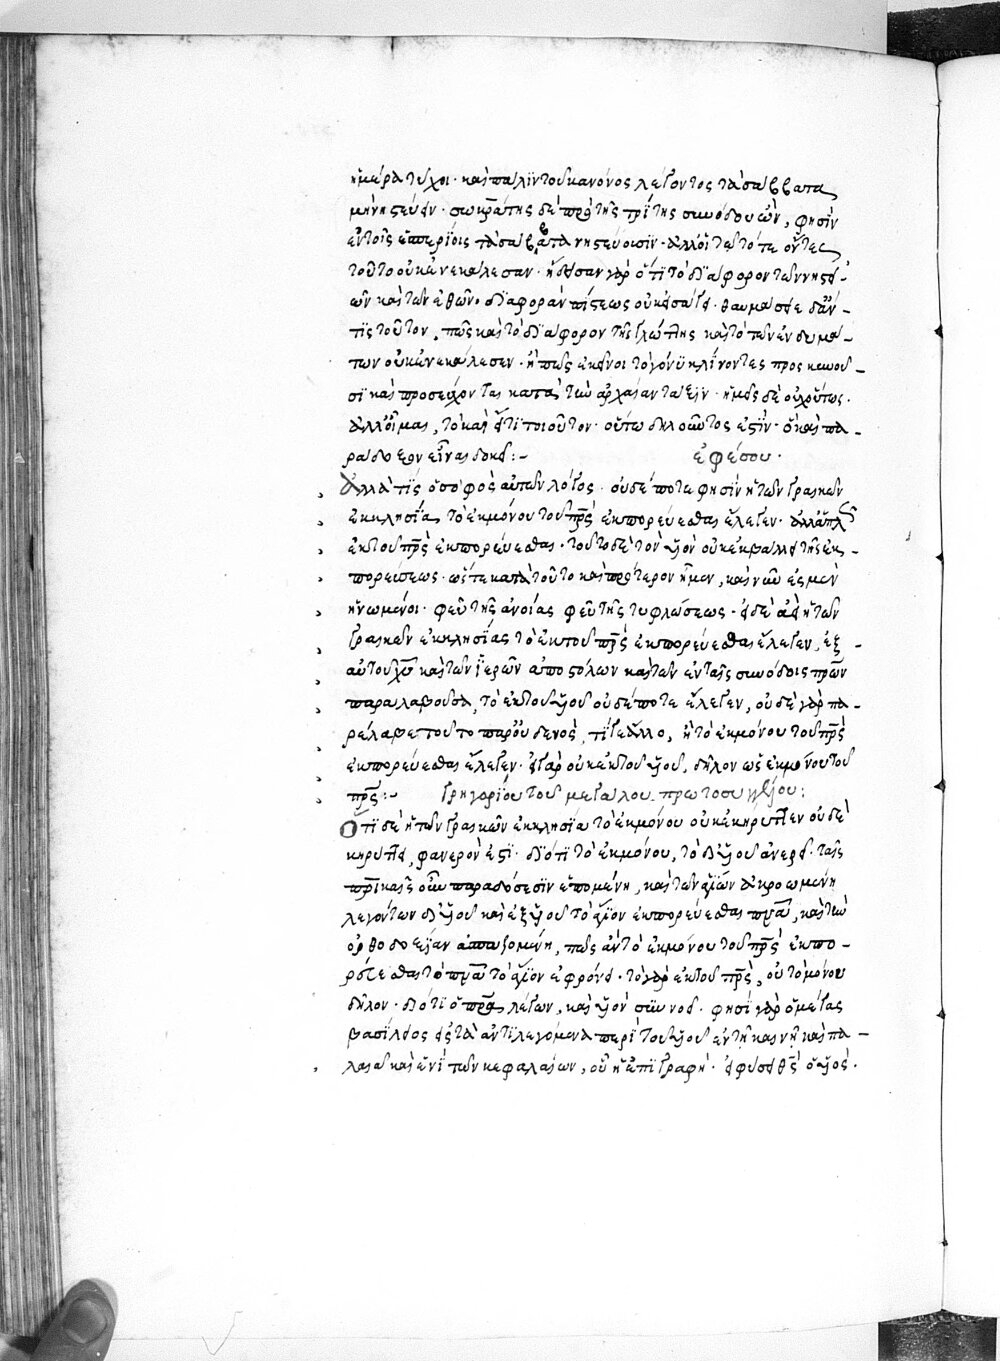 ἡμέρα τύχοι· καὶ πάλιν τοῦ κανόνος λέγοντος τὰ σάββατα
μὴ νηστεύειν· σωκράτης δὲ πρὸ τῆς τρίτης συνόδου ὢν, φησὶν
ἐν τοῖς ἑσπερίοις τὰ σάββατα νηστεύουσιν· ἀλλ' οἵ γε τότε ὄντες
τοῦτο οὐκ ἀνεκάλεσαν· ᾔδεσαν γὰρ ὅτι τὸ διάφορον τῶν νηστει-
ῶν καὶ τῶν ἐθῶν, διαφορὰν πίστεως οὐκ εἰσάγει· θαυμάσειε δ' ἄν
τις τοῦτον, πῶς καὶ τὸ διάφορον τῆς γλώττης καὶ τὸ τῶν ἐνδυμά-
των οὐκ ἀνεκάλεσεν· ἢ πῶς ἐκεῖνοι τὸ γόνυ κλίνοντες προσκυνοῦ-
σι καὶ προσεύχονται κατὰ τὴν ἀρχαίαν τάξιν· ἡμεῖς δὲ οὐχ οὕτως·
ἀλλ' οἶμαι, τὸ καὶ ἔτι ποιοῦντον· οὕτω δηλοῦντος ἐστίν· ὃ καὶ πα-
ράδοξον εἶναι δοκεῖ:- ἐφέσου·
Ἀλλὰ τίς ὁ σοφὸς αὐτῶν λόγος· οὐδέποτε φησὶν ἡ τῶν γραικῶν
ἐκκλησία, τὸ ἐκ μόνου τοῦ πρς ἐκπορεύεσθαι ἔλεγεν· ἀλλ' ἁπλῶς
ἐκ τοῦ πρς ἐκπορεύεσθαι· τοῦτο δὲ τὸν υἱὸν οὐκ ἐκβάλλει τῆς ἐκ-
πορεύσεως· ὥστε κατὰ τοῦτο καὶ πρότερον ἦμεν, καὶ νῦν ἐσμὲν
ἡνωμένοι· φεῦ τῆς ἀνοίας φεῦ τῆς τυφλώσεως· εἰ δὲ ἀεὶ ἡ τῶν
γραικῶν ἐκκλησία τὸ ἐκ τοῦ πρς ἐκπορεύεσθαι ἔλεγεν, ἐξ
αὐτοῦ χυ καὶ τῶν ἱερῶν ἀποστόλων καὶ τῶν ἐν ταῖς συνόδοις πρων
παραλαβοῦσα, τὸ ἐκ τοῦ υἱοῦ οὐδέποτε ἔλεγεν, οὐδὲ γὰρ πα-
ρέλαβε τοῦτο παρ' οὐδενός, τί γε ἄλλο, ἢ τὸ ἐκ μόνου τοῦ πρς
ἐκπορεύεσθαι ἔλεγεν· εἰ γὰρ οὐκ ἐκ τοῦ υἱοῦ, δῆλον ὡς ἐκ μόνου τοῦ
πρς:- Γρηγορίου τοῦ μεγάλου πρωτοσυγκέλλου:
Ὅτι δὲ ἡ τῶν γραικῶν ἐκκλησία τὸ ἐκ μόνου οὐκ ἐκήρυττεν οὐδὲ
κηρύττει, φανερόν ἐστι· διότι τὸ ἐκ μόνου, τὸ δι' υἱοῦ ἀναιρεῖ· ταῖς
πρικαῖς οὖν παραδόσεσιν ἑπομένη, καὶ τῶν ἁγίων ἀκροωμένη
λεγόντων δι' υἱοῦ καὶ ἐξ υἱοῦ τὸ ἅγιον ἐκπορεύεσθαι πνα, καὶ τὴν
ὀρθοδοξίαν ἀσπαζομένη, πῶς ἂν τὸ ἐκ μόνου τοῦ πρς ἐκπο-
ρεύεσθαι τὸ πνα τὸ ἅγιον ἐφρόνει· τὸ γὰρ ἐκ τοῦ πρς, οὐ τὸ μόνου
δηλοῖ· διότι ὁ πρα λέγων, καὶ υἱὸν συννοεῖ· φησὶ γὰρ ὁ μέγας
βασίλειος εἰς τὰ ἀντιλεγόμενα περὶ τοῦ υἱοῦ ἐν τῇ καινῇ καὶ πα-
λαιᾷ καὶ ἑνὶ τῶν κεφαλαίων, οὗ ἡ ἐπιγραφή· εἰ φύσει θς ὁ υἱός·